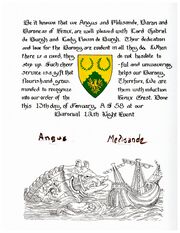 Be it known that we Angus and Melisande, Baron and
Baroness of Fenix, are well pleased with Lord Gabriel
de Burgh and Lady Vivian de Burgh. Their dedication
and love for the Barony, are evident in all they do. When
there is a need, they do not hesitate to
step up. Such cheer -ful and unswerving
service is a gift that helps our Barony.
Therefore, We are
minded to recognize them with induction
into our order of the Fenix Crest. Done
this 13th day of January, A S 58 at our
Baronial 12th Night Event
Angus Melisande